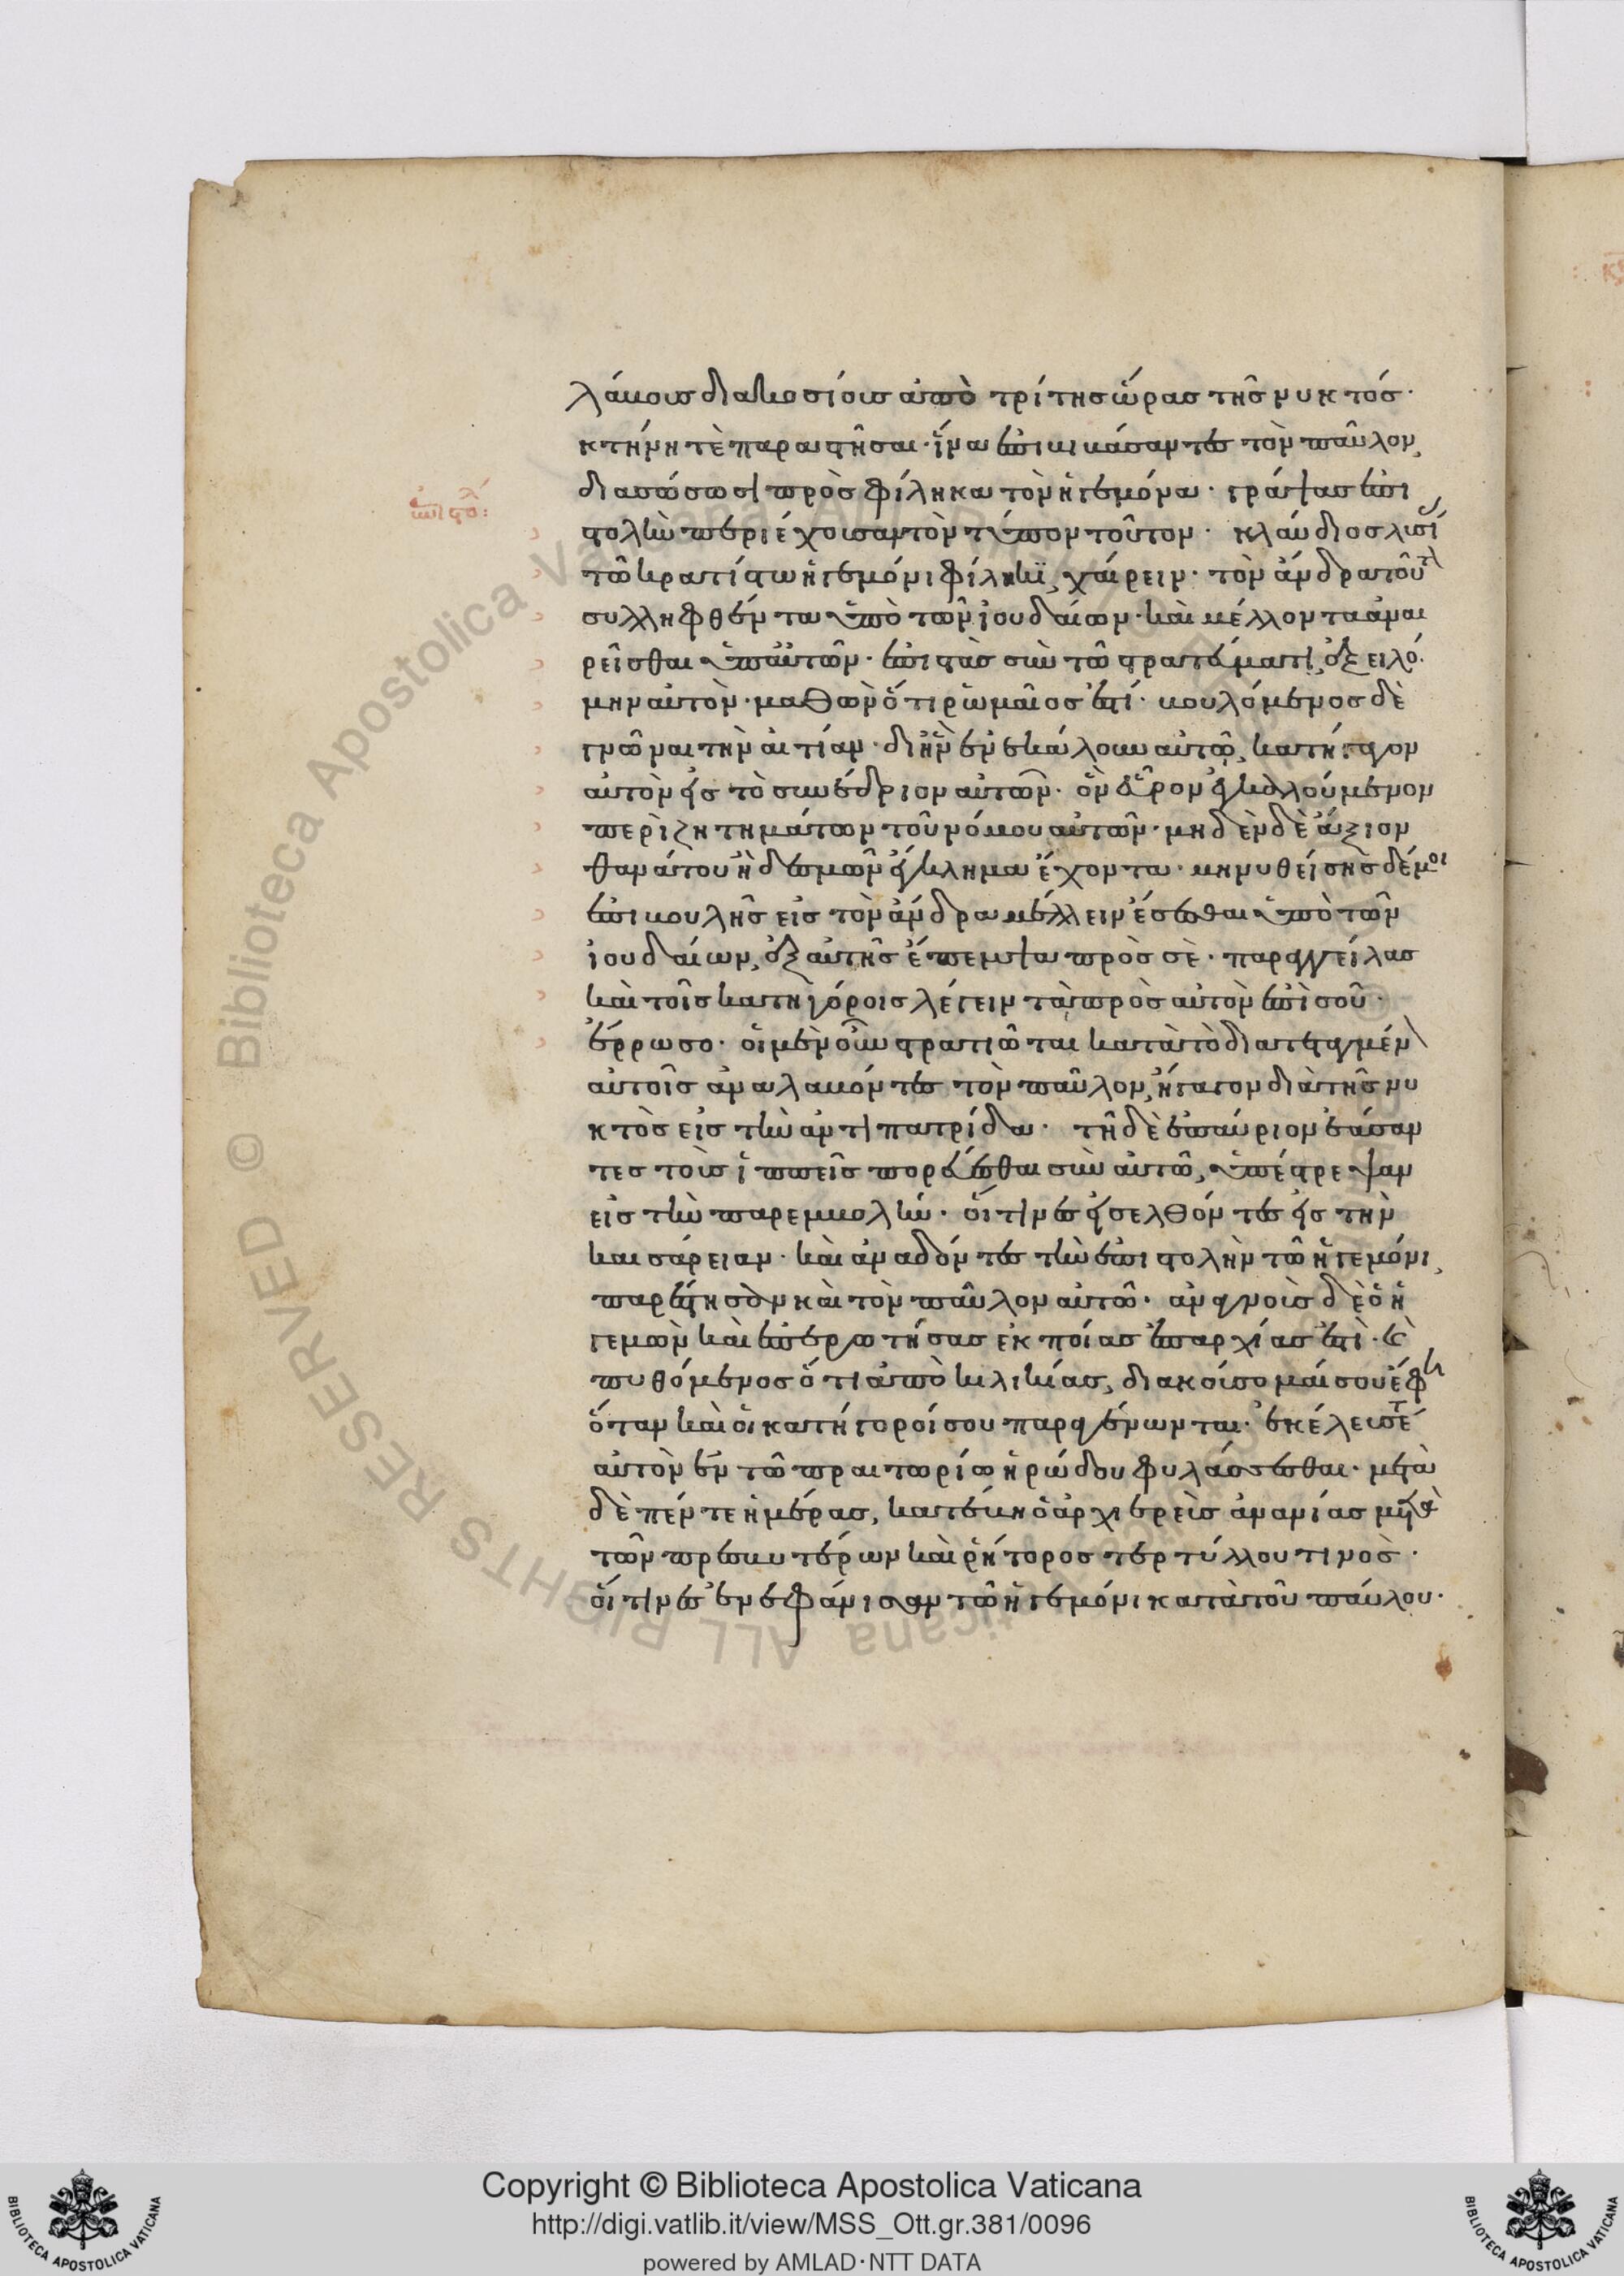 λάβους διακοσίους ἀπὸ τρίτης ὥρας τῆς νυκτός·
κτήνη τὲ παραστῆσαι· ἵνα ἐπιβιβάσαντες τὸν παῦλον,
διασώσωσι πρὸς φίληκα τὸν ἡγεμόνα· γράψας ἐπι
ἐπιστολ:
στολὴν περιέχουσαν τὸν τύπον τοῦτον· κλαύδιος λυσί
τῶ κρατίστω ἡγεμόνι φίληκϊ, χαίρειν· τὸν ἄνδρα τοῦτ
συλληφθέντα ὑπὸ τῶν ἰουδαίων· καὶ μέλλοντα ἀναι
ρεῖσθαι ὑπ' αὐτῶν· ἐπιστὰς σὺν τῶ στρατεύματι, ἐξειλό
μην αὐτὸν· μαθὼν ὅτι ῥωμαῖος ἐστί· βουλόμενος δὲ
γνῶναι τὴν αἰτίαν· δι' ἣν ἐνεκάλουν αὐτῶ, κατήγαγον
αὐτὸν εἰς τὸ συνέδριον αὐτῶν· ὃν εὗρον ἐγκαλούμενον
περὶ ζητημάτων τοῦ νόμου αὐτῶν· μηδὲν δὲ ἄξιον
θανάτου ἢ δεσμῶν ἔγκλημα ἔχοντα· μηνυθείσης δέ μοι
ἐπιβουλῆς εἰς τὸν ἄνδρα μέλλειν ἔσεσθαι ὑπὸ τῶν
ἰουδαίων, ἐξ αὐτῆς ἔπεμψα πρὸς σὲ· παραγγείλας
καὶ τοῖς κατηγόροις λέγειν τὰ πρὸς αὐτὸν ἐπὶ σοῦ·
ἔρρωσο· οἱ μὲν οὖν στρατιῶται κατὰ τὸ διατεταγμέν
αὐτοῖς ἀναλαβόντες τὸν παῦλον, ἤγαγον διὰ τῆς νυ
κτὸς εἰς τὴν ἀντιπατρίδα· τῆ δὲ ἐπαύριον ἐάσαν
τες τοὺς ἱππεῖς πορεύεσθαι σὺν αὐτῶ, ὑπέστρεψαν
εἰς τὴν παρεμβολήν· οἵτινες εἰσελθόντες εἰς τὴν
καισάρειαν· καὶ ἀναδόντες τὴν ἐπιστολὴν τῶ ἡγεμόνι,
παρέστησαν καὶ τὸν παῦλον αὐτῶ· ἀναγνοὺς δὲ ὁ ἡ
γεμὼν καὶ ἐπερωτήσας ἐκ ποίας ἐπαρχίας ἐστὶ· καὶ
πυθόμενος ὅτι ἀπὸ κιλικίας, διακούσομαί σου ἔφη
ὅταν καὶ οἱ κατήγοροί σου παραγένωνται· ἐκέλευσέ τ
αὐτὸν ἐν τῶ πραιτωρίω ἡρώδου φυλάσσεσθαι· μετὰ
δὲ πέντε ἡμέρας, κατέβη ὁ ἀρχιερεὺς ἀνανίας μετὰ
τῶν πρεσβυτέρων καὶ ῥήτορος τερτύλλου τινὸς·
οἵτινες ἐνεφάνισαν τῶ ἡγεμόνι κατὰ τοῦ παύλου·
Copyright © Biblioteca Apostolica Vaticana
http://digi.vatlib.it/view/MSS_Ott.gr.381/0096
powered by AMLAD·NTT DATA